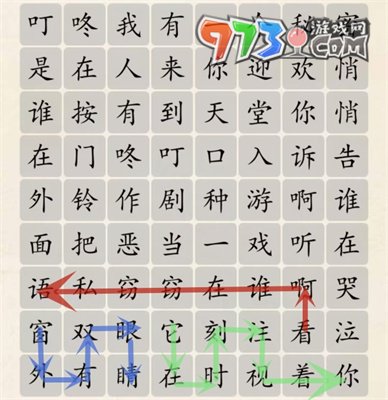 叮咚我有秘
973游戏网
是在人来你迎欢悄
谁按有到天堂你悄
在门咚叮口入诉告
外铃作剧种游啊谁
面把恶当一戏听在
语私窃窃在谁啊哭
窗双眼它刻注看泣
外有睛在时视着你